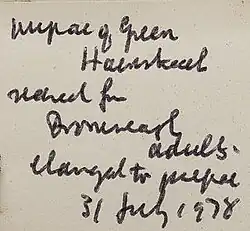 pupae of Green
Hairstreak
reared fm
adults.
changed to pupae
31 July 1978